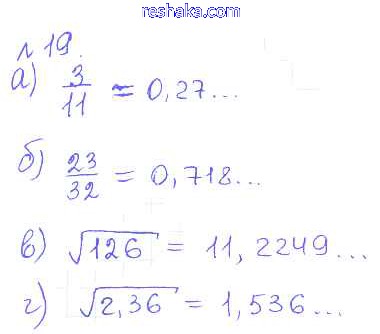 reshaka.com
№19.
а) 3/11 ≈ 0,27...
б) 23/32 = 0,718...
в) √126 = 11,2249...
г) √2,36 = 1,536...